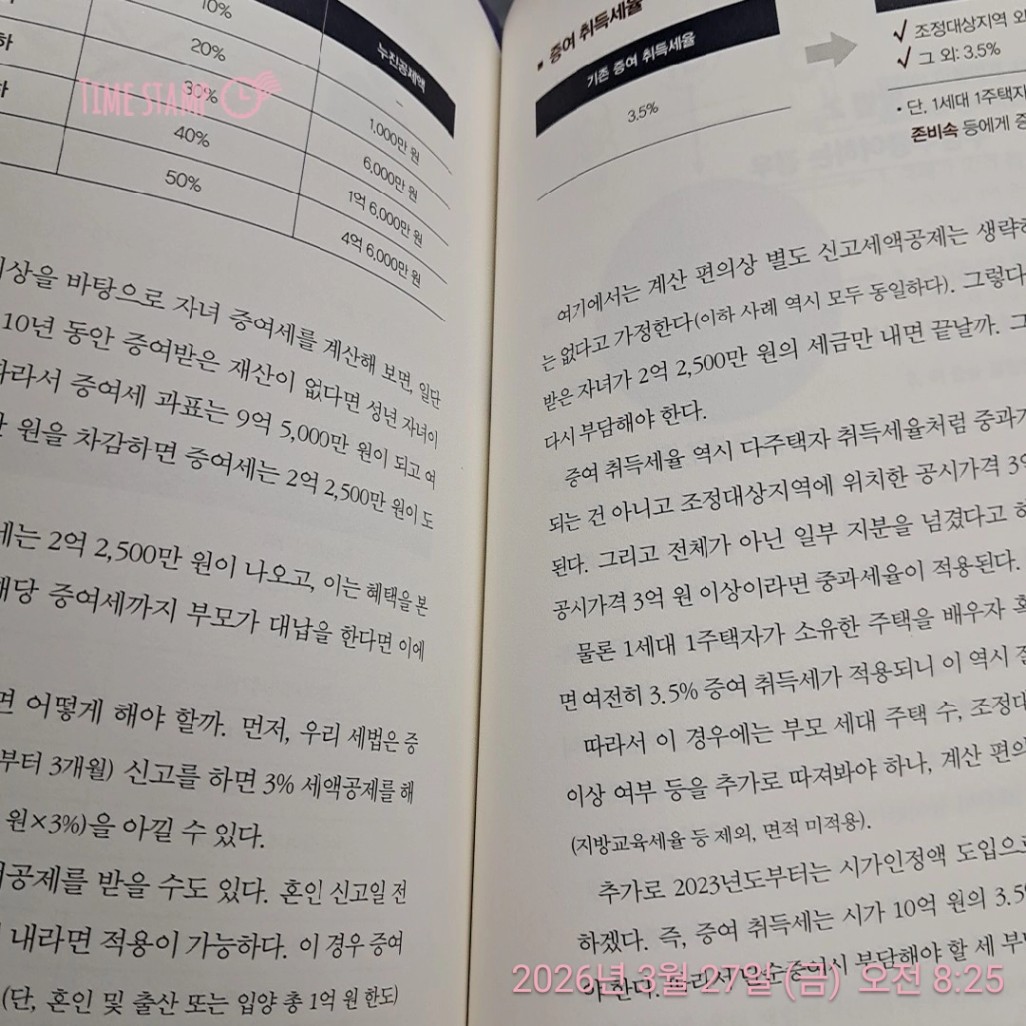 10%
누진공제액
20%
-
30%
1,000만 원
40%
6,000만 원
50%
1억 6,000만 원
4억 6,000만 원
TIME STAMP
이상을 바탕으로 자녀 증여세를 계산해 보면, 일단
10년 동안 증여받은 재산이 없다면 성년 자녀이
따라서 증여세 과표는 9억 5,000만 원이 되고 여
원을 차감하면 증여세는 2억 2,500만 원이 도
2억 2,500만 원이 나오고, 이는 혜택을 본
해당 증여세까지 부모가 대납을 한다면 이에
어떻게 해야 할까. 먼저, 우리 세법은 증
부터 3개월) 신고를 하면 3% 세액공제를 해
원×3%)을 아낄 수 있다.
받을 수도 있다. 혼인 신고일 전
내라면 적용이 가능하다. 이 경우 증여
(단, 혼인 및 출산 또는 입양 총 1억 원 한도)
▪ 증여 취득세율
기존 증여 취득세율
3.5%
✓ 조정대상지역 외
✓ 그 외: 3.5%
• 단, 1세대 1주택자
존비속 등에게 증
여기에서는 계산 편의상 별도 신고세액공제는 생략하
는 없다고 가정한다(이하 사례 역시 모두 동일하다). 그렇다
받은 자녀가 2억 2,500만 원의 세금만 내면 끝날까. 그
다시 부담해야 한다.
증여 취득세율 역시 다주택자 취득세율처럼 중과가
되는 건 아니고 조정대상지역에 위치한 공시가격 3억
된다. 그리고 전체가 아닌 일부 지분을 넘겼다고 하
공시가격 3억 원 이상이라면 중과세율이 적용된다.
물론 1세대 1주택자가 소유한 주택을 배우자 혹
면 여전히 3.5% 증여 취득세가 적용되니 이 역시
따라서 이 경우에는 부모 세대 주택 수, 조정대
이상 여부 등을 추가로 따져봐야 하나, 계산 편의
(지방교육세율 등 제외, 면적 미적용).
추가로 2023년도부터는 시가인정액 도입으로
하겠다. 즉, 증여 취득세는 시가 10억 원의 3.5%
야 한다. 따라서 단순증여시 부담해야 할 세 부
2026년 3월 27일 (금) 오전 8:25